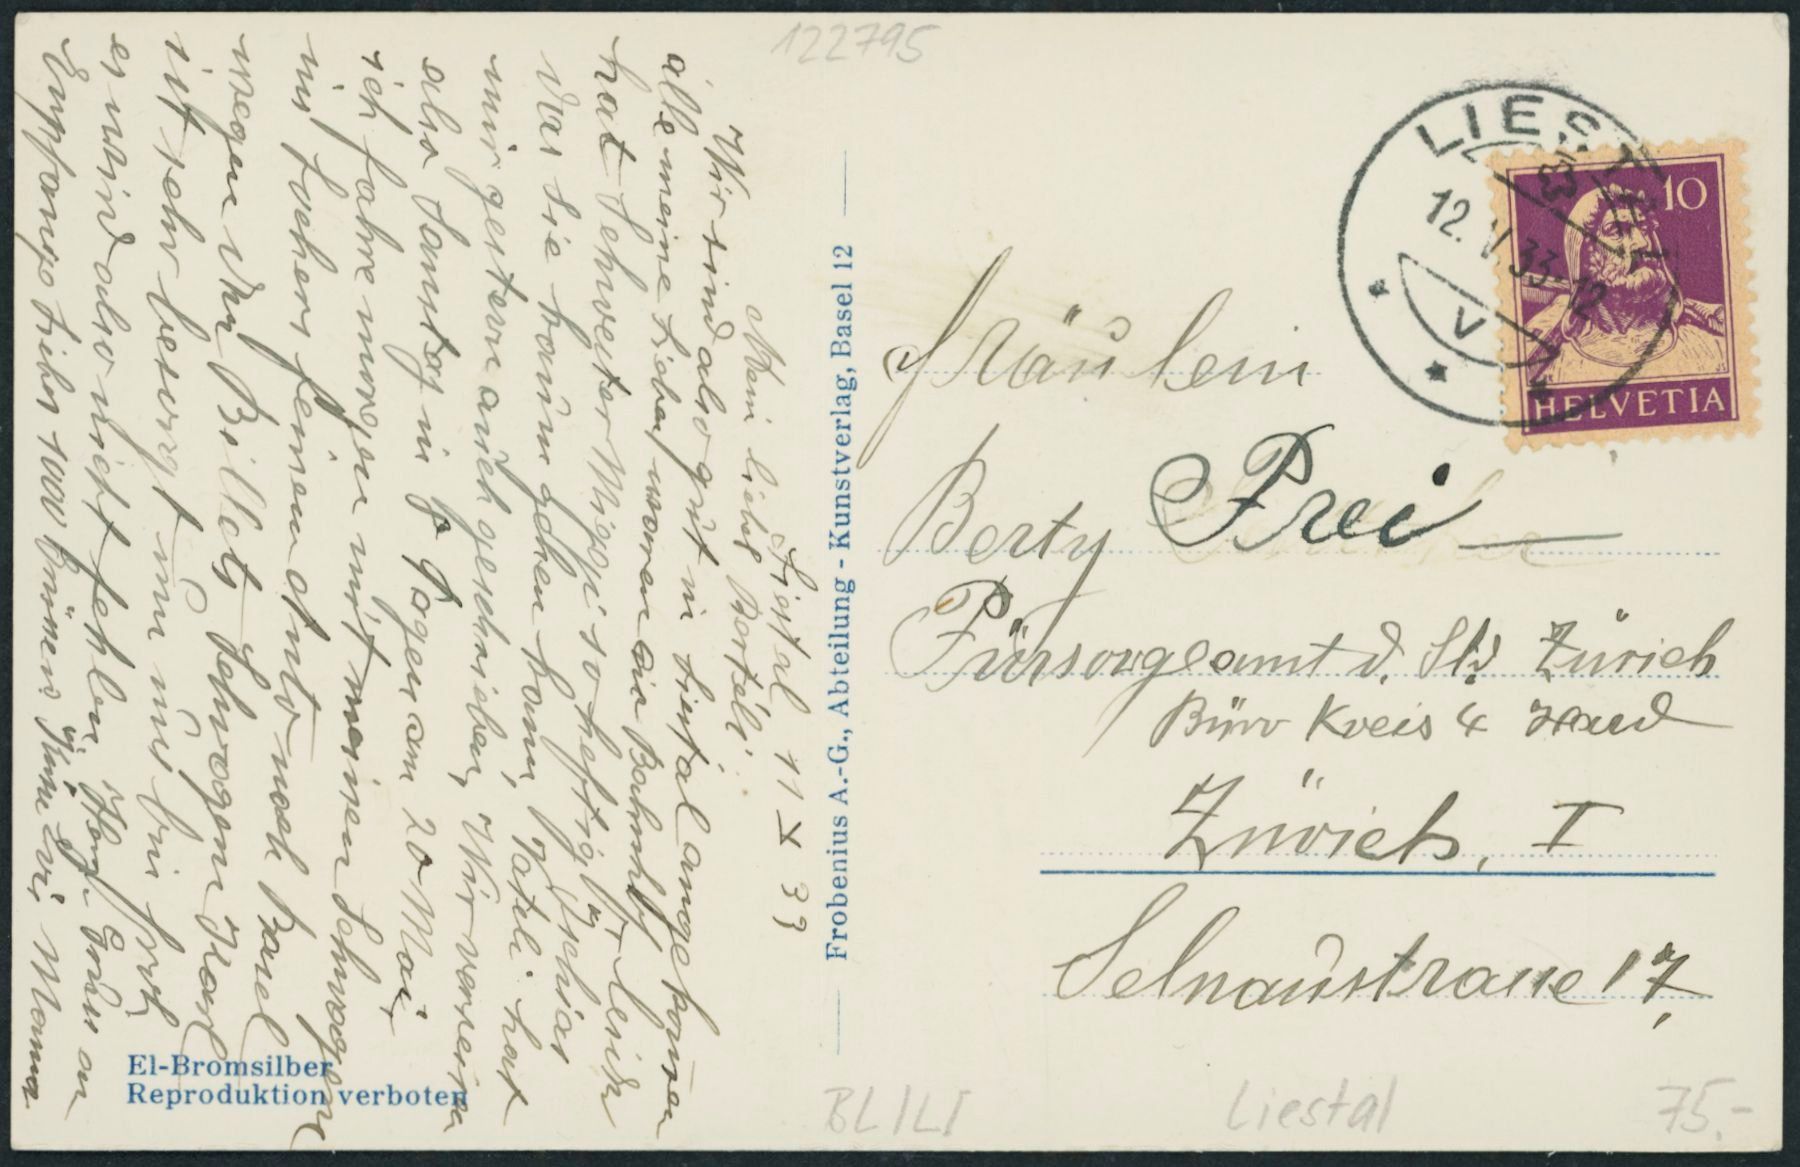 122795
Liestal 11 V 33
Mein liebes Bertéli
Wir sind also gut in Liestal angekommen
alle meine Lieben waren am Bahnhof
hat Schwester Miggi so heftig
das sie kaum gehen kann, Vateli hat
mir gestern auch geschrieben, Wir verreisen
also Samstag in 8 Tagen am 20 Mai,
ich fahre morgen mit meinen Schwagern
ins Lochers feinem Auto nach Basel
wegen den Billets Schwager Karl
ist sehr besorgt um uns bin froh
es wird also nicht fehlen, Herzl. Gruss an
Empfange liebes 1000 Grüsse Küsse Mama
Frobenius A.-G., Abteilung - Kunstverlag, Basel 12
El-Bromsilber
Reproduktion verboten
LIESTAL
12. V. 33-12
V
10
HELVETIA
Fräulein
Berty Frei
Fürsorgeamt d. Std Zürich
Büro Kreis 4
Zürich, I
Selnaustrasse 17,
BL/LI
Liestal
75.-